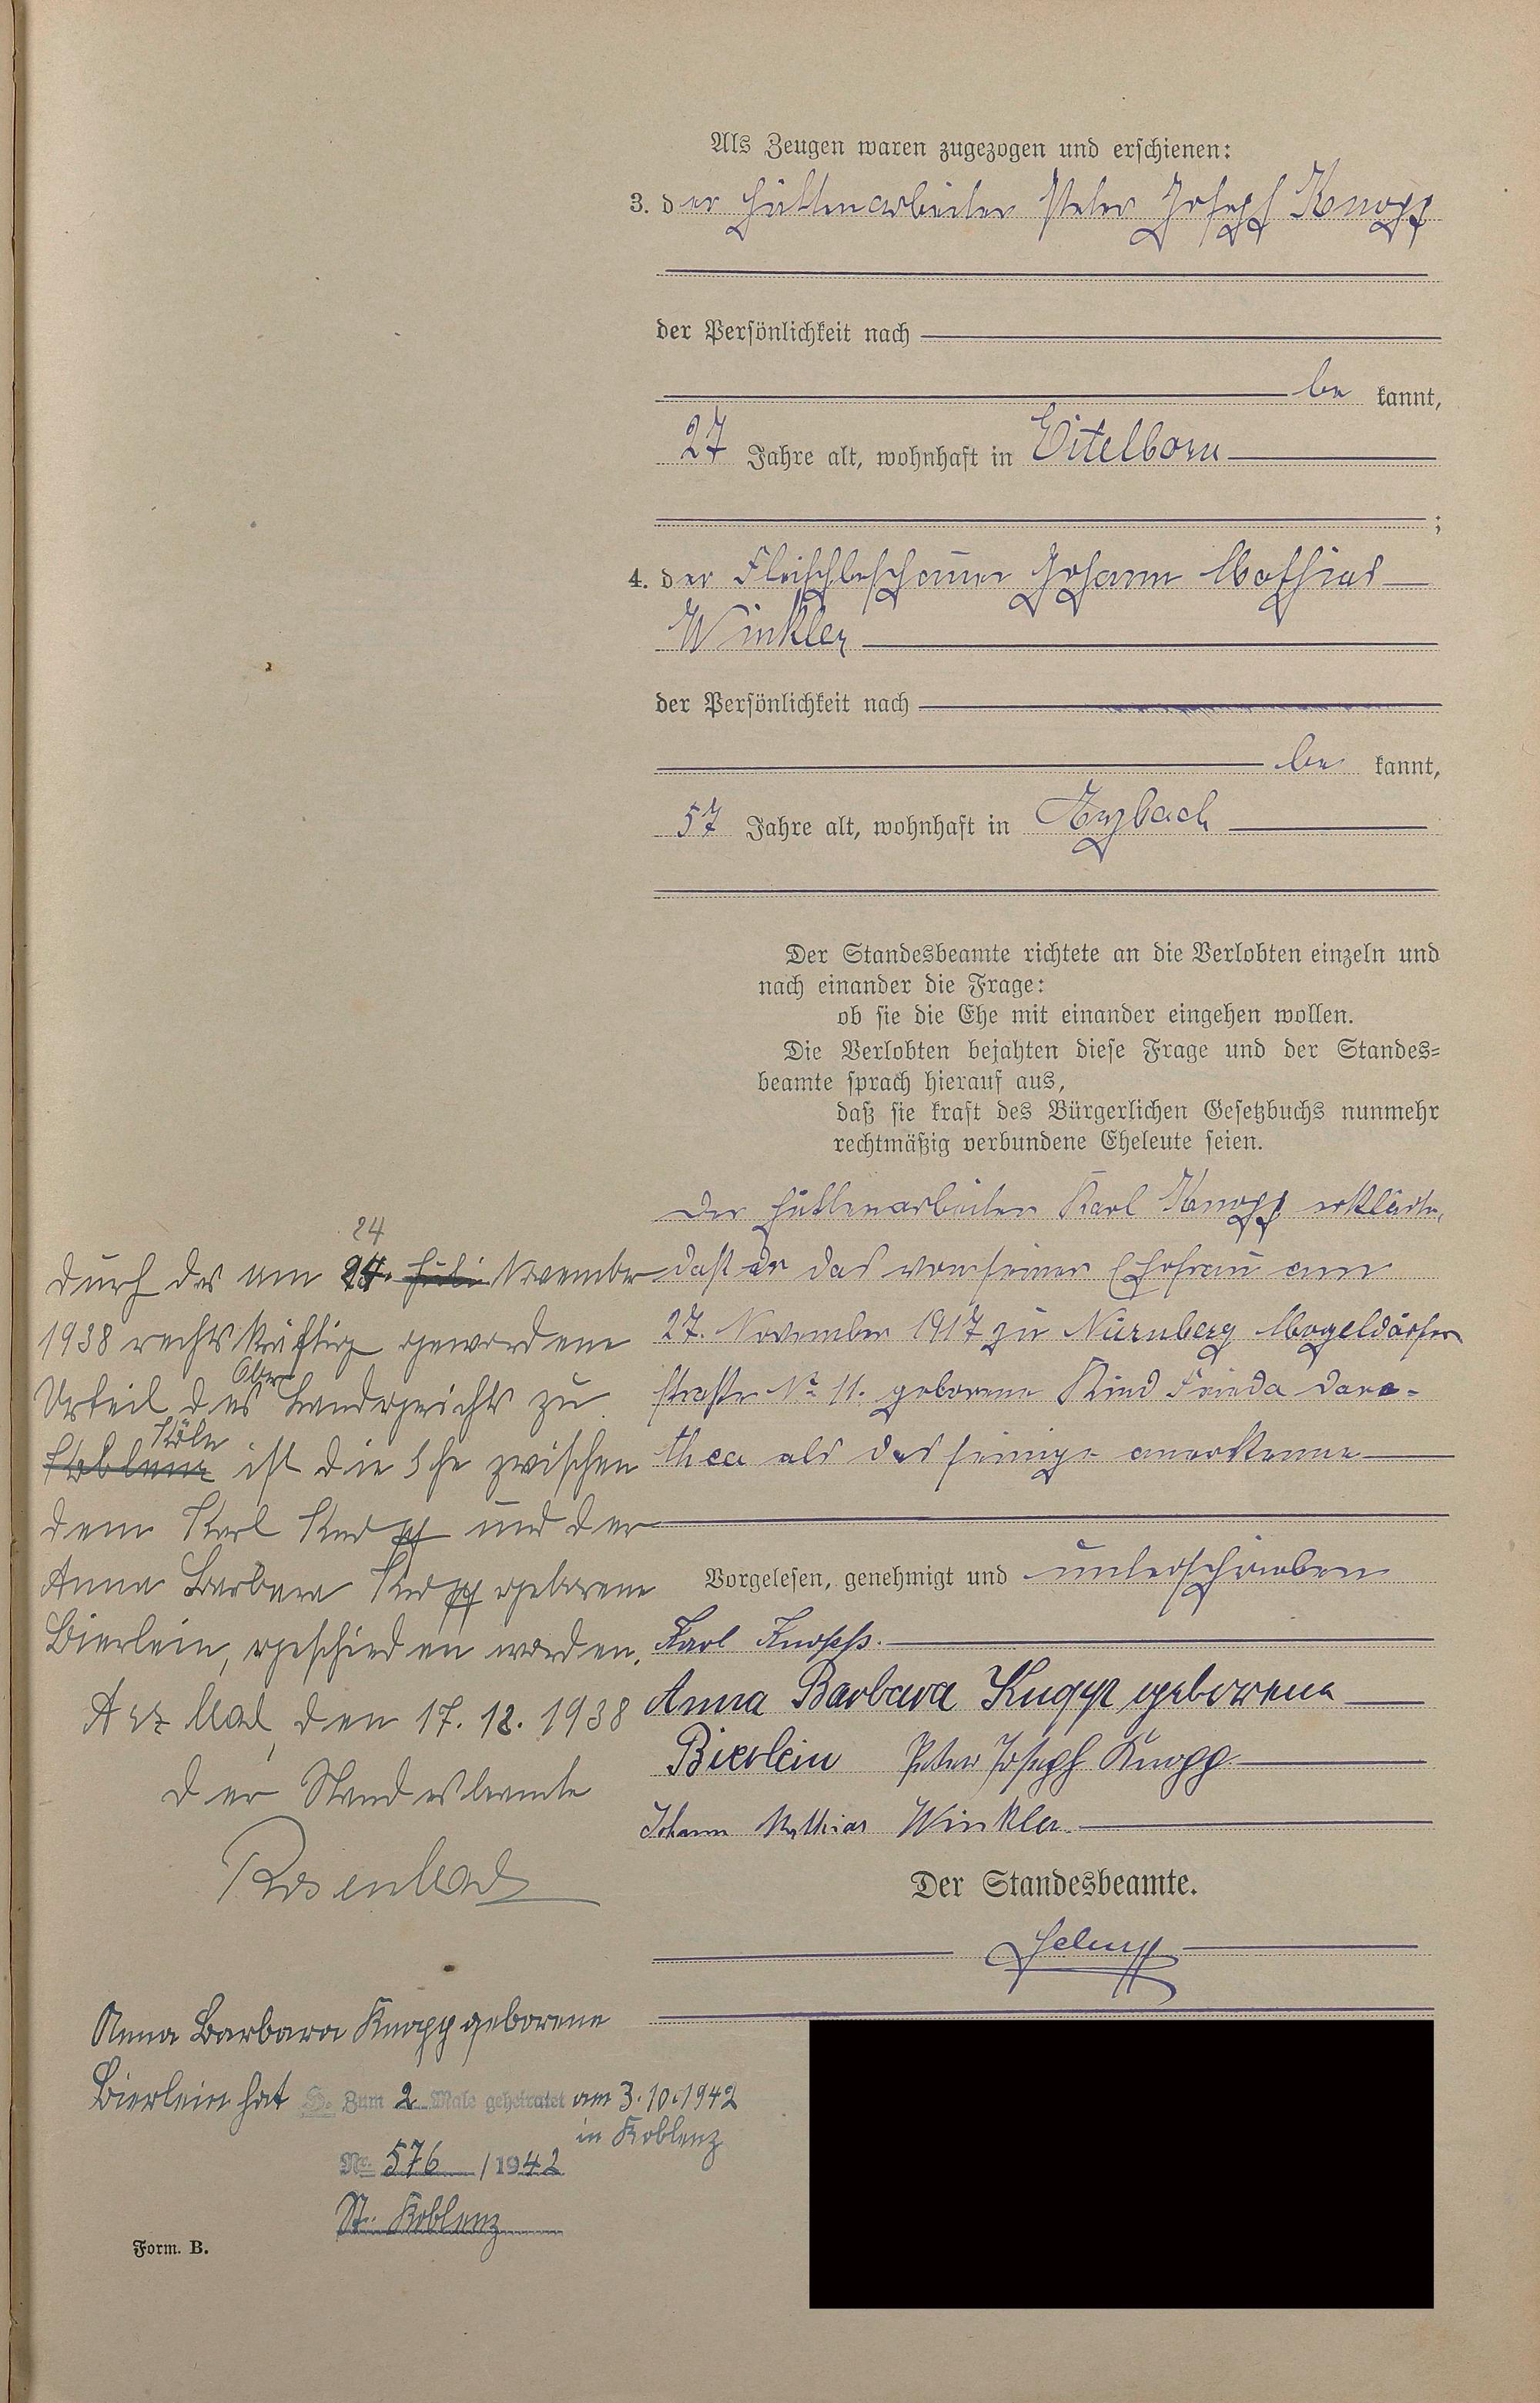 Als Zeugen waren zugezogen und erschienen:
3. der Hüttenarbeiter Peter Joseph Knopp
der Persönlichkeit nach
be kannt,
27 Jahre alt, wohnhaft in Eitelborn
;
4. der Fleischbeschauer Johann Mathias
Winkler
der Persönlichkeit nach
be kannt,
57 Jahre alt, wohnhaft in Arzbach
Der Standesbeamte richtete an die Verlobten einzeln und
nach einander die Frage:
ob sie die Ehe mit einander eingehen wollen.
Die Verlobten bejahten diese Frage und der Standes-
beamte sprach hierauf aus,
daß sie kraft des Bürgerlichen Gesetzbuchs nunmehr
rechtmäßig verbundene Eheleute seien.
Der Hüttenarbeiter Karl Knopp erklärte,
daß er das von seiner Ehefrau am
27. November 1917 zu Nürnberg Mögeldörfer
straße No 11. geborene Kind Frieda Doro-
thea als das seinige anerkenne
Vorgelesen, genehmigt und unterschrieben
Karl Knopp.
Anna Barbara Knopp geborene
Bierlein Peter Joseph Knopp
Johann Mathias Winkler
Der Standesbeamte.
24
Durch das am 24. Juli November
1938 rechtskräftig gewordene
Urteil des Ober Landgerichts zu
Köln
Koblenz ist die Ehe zwischen
dem Karl Knopp und der
Anna Barbara Knopp geborene
Bierlein, geschieden worden.
Arzbach, den 17. 12. 1938
Der Standesbeamte
Rosenbach
Anna Barbara Knopp geborene
Bierlein hat H. Zum 2 Male geheiratet am 3.10.1942
in Koblenz
No. 576 / 1942
St. Koblenz
Form. B.